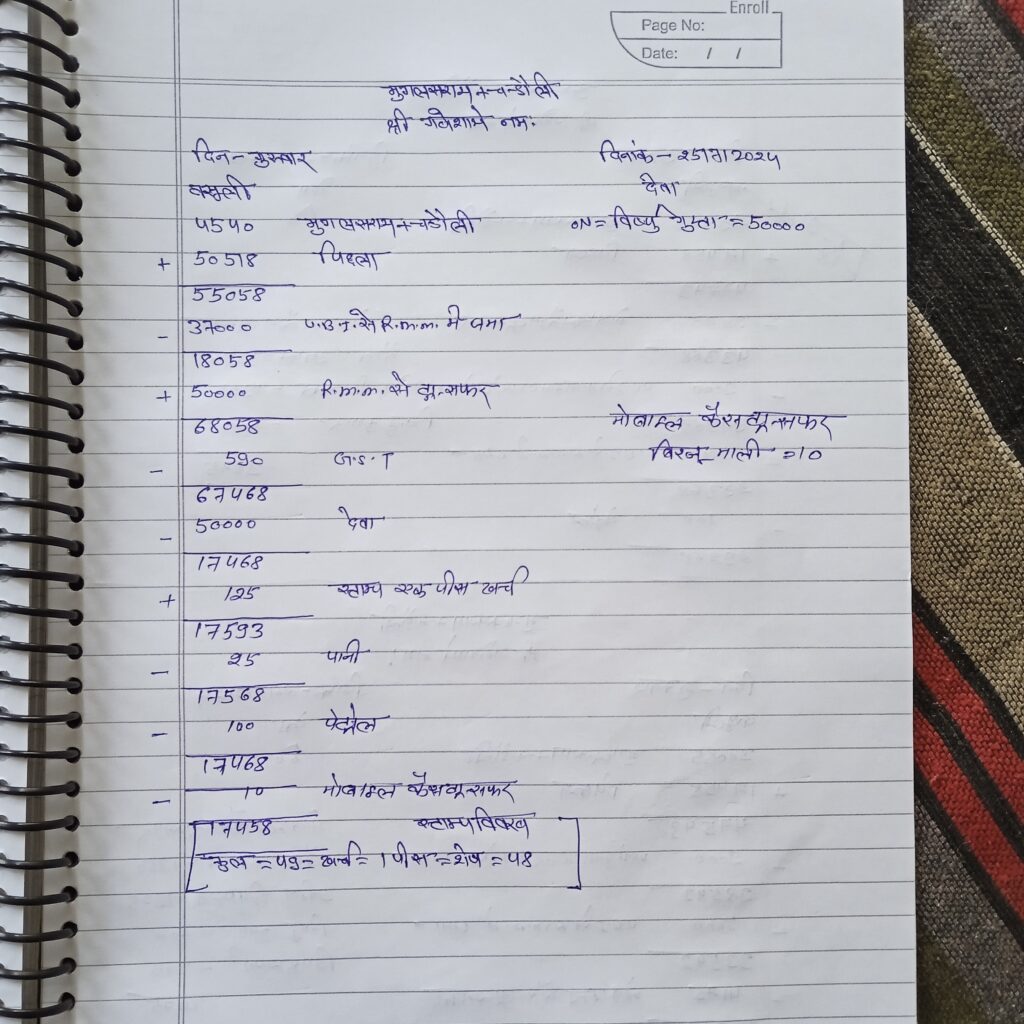 Enroll
Page No:
Date: / /
मुगलसराय + चन्डौली
श्री गणेशाये नमः
दिन - गुरुवार दिनांक - 25/7/2024
वसुली देवा
4540 मुगलसराय + चडौली ON = विष्णु गुप्ता = 50000
+ 50518 पिछला
55058
- 37000 U.B.I. से R.m.m. मे जमा
18058
+ 50000 R.m.m. से ट्रान्सफर
68058 मोबाइल कैस ट्रान्सफर
- 590 G.S.T विरजू माली = 10
67468
- 50000 देवा
17468
+ 125 स्टाम्प एक पीस खर्च
17593
- 25 पानी
17568
- 100 पेट्रोल
17468
- 10 मोबाइल कैस ट्रान्सफर
17458 स्टाम्प विवरण
कुल = 49 = खर्च = 1 पीस = शेष = 48